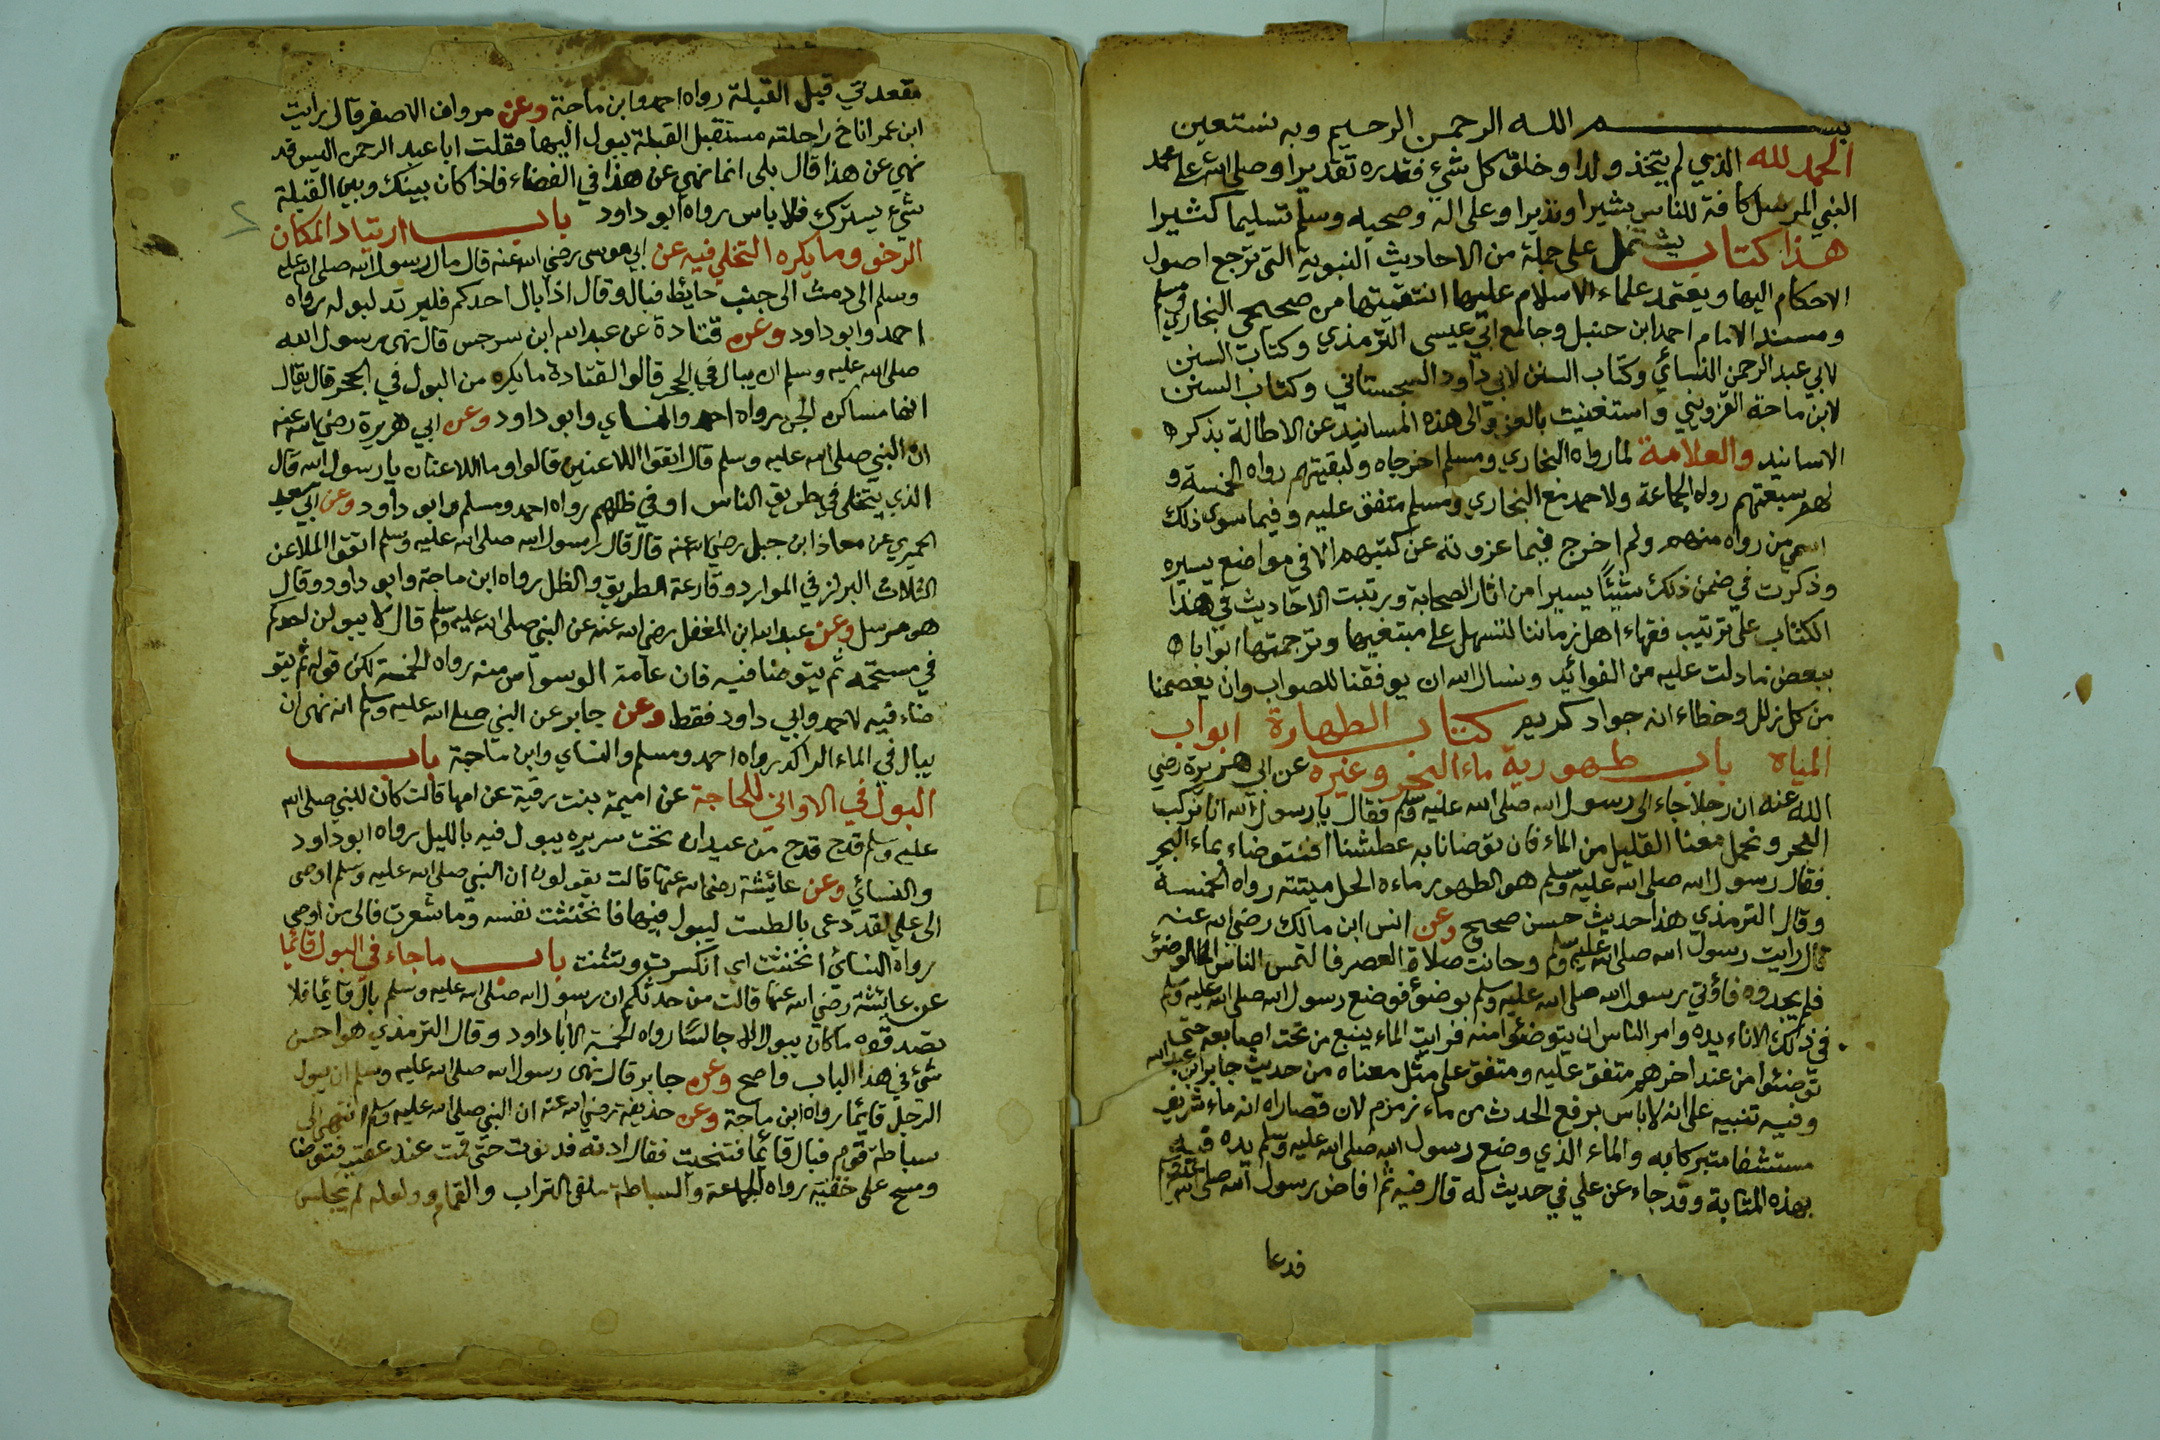 بســـم الله الرحمن الرحيم وبه نستعين
الحمد لله الذي لم يتخذ ولدا وخلق كل شيء فقدره تقديرا وصلى الله على محمد
النبي المرسل كافة للناس بشيرا ونذيرا وعلى اله وصحبه وسلم تسليما كثيرا
هذا كتاب يشتمل على جملة من الاحاديث النبوية التي ترجع اصول
الاحكام اليها ويعتمد علماء الاسلام عليها انتقيتها من صحيحي البخاري ومسلم
ومسند الامام احمد ابن حنبل وجامع ابي عيسى الترمذي وكتاب السنن
لابي عبد الرحمن النسائي وكتاب السنن لابي داود السجستاني وكتاب السنن
لابن ماجة القزويني واستغنيت بالعزو الى هذه المسانيد عن الاطالة بذكر
الاسانيد والعلامة لما رواه البخاري ومسلم اخرجاه ولبقيتهم رواه الخمسة و
لهم سبعتهم رواه الجماعة ولاحمد مع البخاري ومسلم متفق عليه وفيما سوى ذلك
اسمي من رواه منهم ولم اخرج فيما عزوته عن كتبهم الا في مواضع يسيره
وذكرت في ضمن ذلك شيئا يسيرا من اثار الصحابة ورتبت الاحاديث في هذا
الكتاب على ترتيب فقهاء اهل زماننا لتسهل على مبتغيها وترجمتها ابوابا
ببعض ما دلت عليه من الفوائد ونسال الله ان يوفقنا للصواب وان يعصمنا
من كل زلل وخطاء انه جواد كريم كتاب الطهارة ابواب
المياه باب طهورية ماء البحر وغيره عن ابي هريرة رضي
الله عنه ان رجلا جاء الى رسول الله صلى الله عليه وسلم فقال يا رسول الله انا نركب
البحر ونحمل معنا القليل من الماء فان توضانا به عطشنا افنتوضاء بماء البحر
فقال رسول الله صلى الله عليه وسلم هو الطهور ماءه الحل ميتته رواه الخمسة
وقال الترمذي هذا حديث حسن صحيح وعن انس ابن مالك رضي الله عنه
قال رايت رسول الله صلى الله عليه وسلم وحانت صلاة العصر فالتمس الناس الوضوء
فلم يجدوه فاوتي رسول الله صلى الله عليه وسلم بوضوء فوضع رسول الله صلى الله عليه وسلم
في ذلك الاناء يده وامر الناس ان يتوضئوا منه فرايت الماء ينبع من تحت اصابعه حتى
توضئوا من عند اخرهم متفق عليه ومتفق على مثل معناه من حديث جابر ابن عبد الله
وفيه تنبيه على انه لا باس برفع الحدث من ماء زمزم لان قصاراه انه ماء شريف
مستشفا متبركا به والماء الذي وضع رسول الله صلى الله عليه وسلم يده فيه
بهذه المثابة وقد جاء عن علي في حديث له قال فيه ثم افاض رسول الله صلى الله عليه وسلم
فدعا
مقعدتي قبل القبلة رواه احمد وابن ماجة وعن مروان الاصفر قال رايت
ابن عمر اناخ راحلته مستقبل القبلة يبول اليها فقلت ابا عبد الرحمن اليس قد
نهي عن هذا قال بلى انما نهي عن هذا في الفضاء فاذا كان بينك وبين القبلة
شيء يسترك فلا باس رواه ابو داود باب ارتياد المكان
الرخو وما يكره التخلي فيه عن ابي موسى رضي الله عنه قال مال رسول الله صلى الله عليه
وسلم الى دمث الى جنب حايط فبال وقال اذا بال احدكم فليرتد لبوله رواه
احمد وابو داود وعن قتادة عن عبد الله ابن سرجس قال نهى رسول الله
صلى الله عليه وسلم ان يبال في الجحر قالوا لقتادة ما يكره من البول في الجحر قال يقال
انها مساكن الجن رواه احمد والنساي وابو داود وعن ابي هريرة رضي الله عنه
ان النبي صلى الله عليه وسلم قال اتقوا اللاعنين قالوا وما اللاعنان يا رسول الله قال
الذي يتخلى في طريق الناس او في ظلهم رواه احمد ومسلم وابو داود وعن ابي سعيد
الحميري عن معاذ ابن جبل رضي الله عنه قال قال رسول الله صلى الله عليه وسلم اتقوا الملاعن
الثلاث البراز في الموارد وقارعة الطريق والظل رواه ابن ماجة وابو داود وقال
هو مرسل وعن عبد الله ابن المغفل رضي الله عنه عن النبي صلى الله عليه وسلم قال لا يبولن احدكم
في مستحمه ثم يتوضا فيه فان عامة الوسواس منه رواه الخمسة لكن قوله ثم يتو
ضاء فيه لاحمد وابي داود فقط وعن جابر عن النبي صلى الله عليه وسلم انه نهى ان
يبال في الماء الراكد رواه احمد ومسلم والنساي وابن ماجة باب
البول في الاواني للحاجة عن اميمة بنت رقية عن امها قالت كان للنبي صلى الله
عليه وسلم قدح قدح من عيدان تحت سريره يبول فيه بالليل رواه ابو داود
والنسائي وعن عائشة رضي الله عنها قالت يقولون ان النبي صلى الله عليه وسلم اوصى
الى علي لقد دعى بالطست ليبول فيها فانخنثت نفسه وما شعرت فالى من اوصى
رواه النسائي انخنثت اي انكسرت وتثنت باب ما جاء في البول قائما
عن عايشة رضي الله عنها قالت من حدثكم ان رسول الله صلى الله عليه وسلم بال قايما فلا
تصدقوه ما كان يبول الا جالسا رواه الخمسة الا ابا داود وقال الترمذي هو احسن
شيء في هذا الباب واصح وعن جابر قال نهى رسول الله صلى الله عليه وسلم ان يبول
الرجل قايما رواه ابن ماجة وعن حذيفة رضي الله عنه ان النبي صلى الله عليه وسلم انتهى الى
سباطة قوم فبال قائما فتنحيت فقال ادنه فدنوت حتى قمت عند عقبيه فتوضا
ومسح على خفيه رواه الجماعة والسباطة ملقى التراب والقمام ولعله لم يجلس